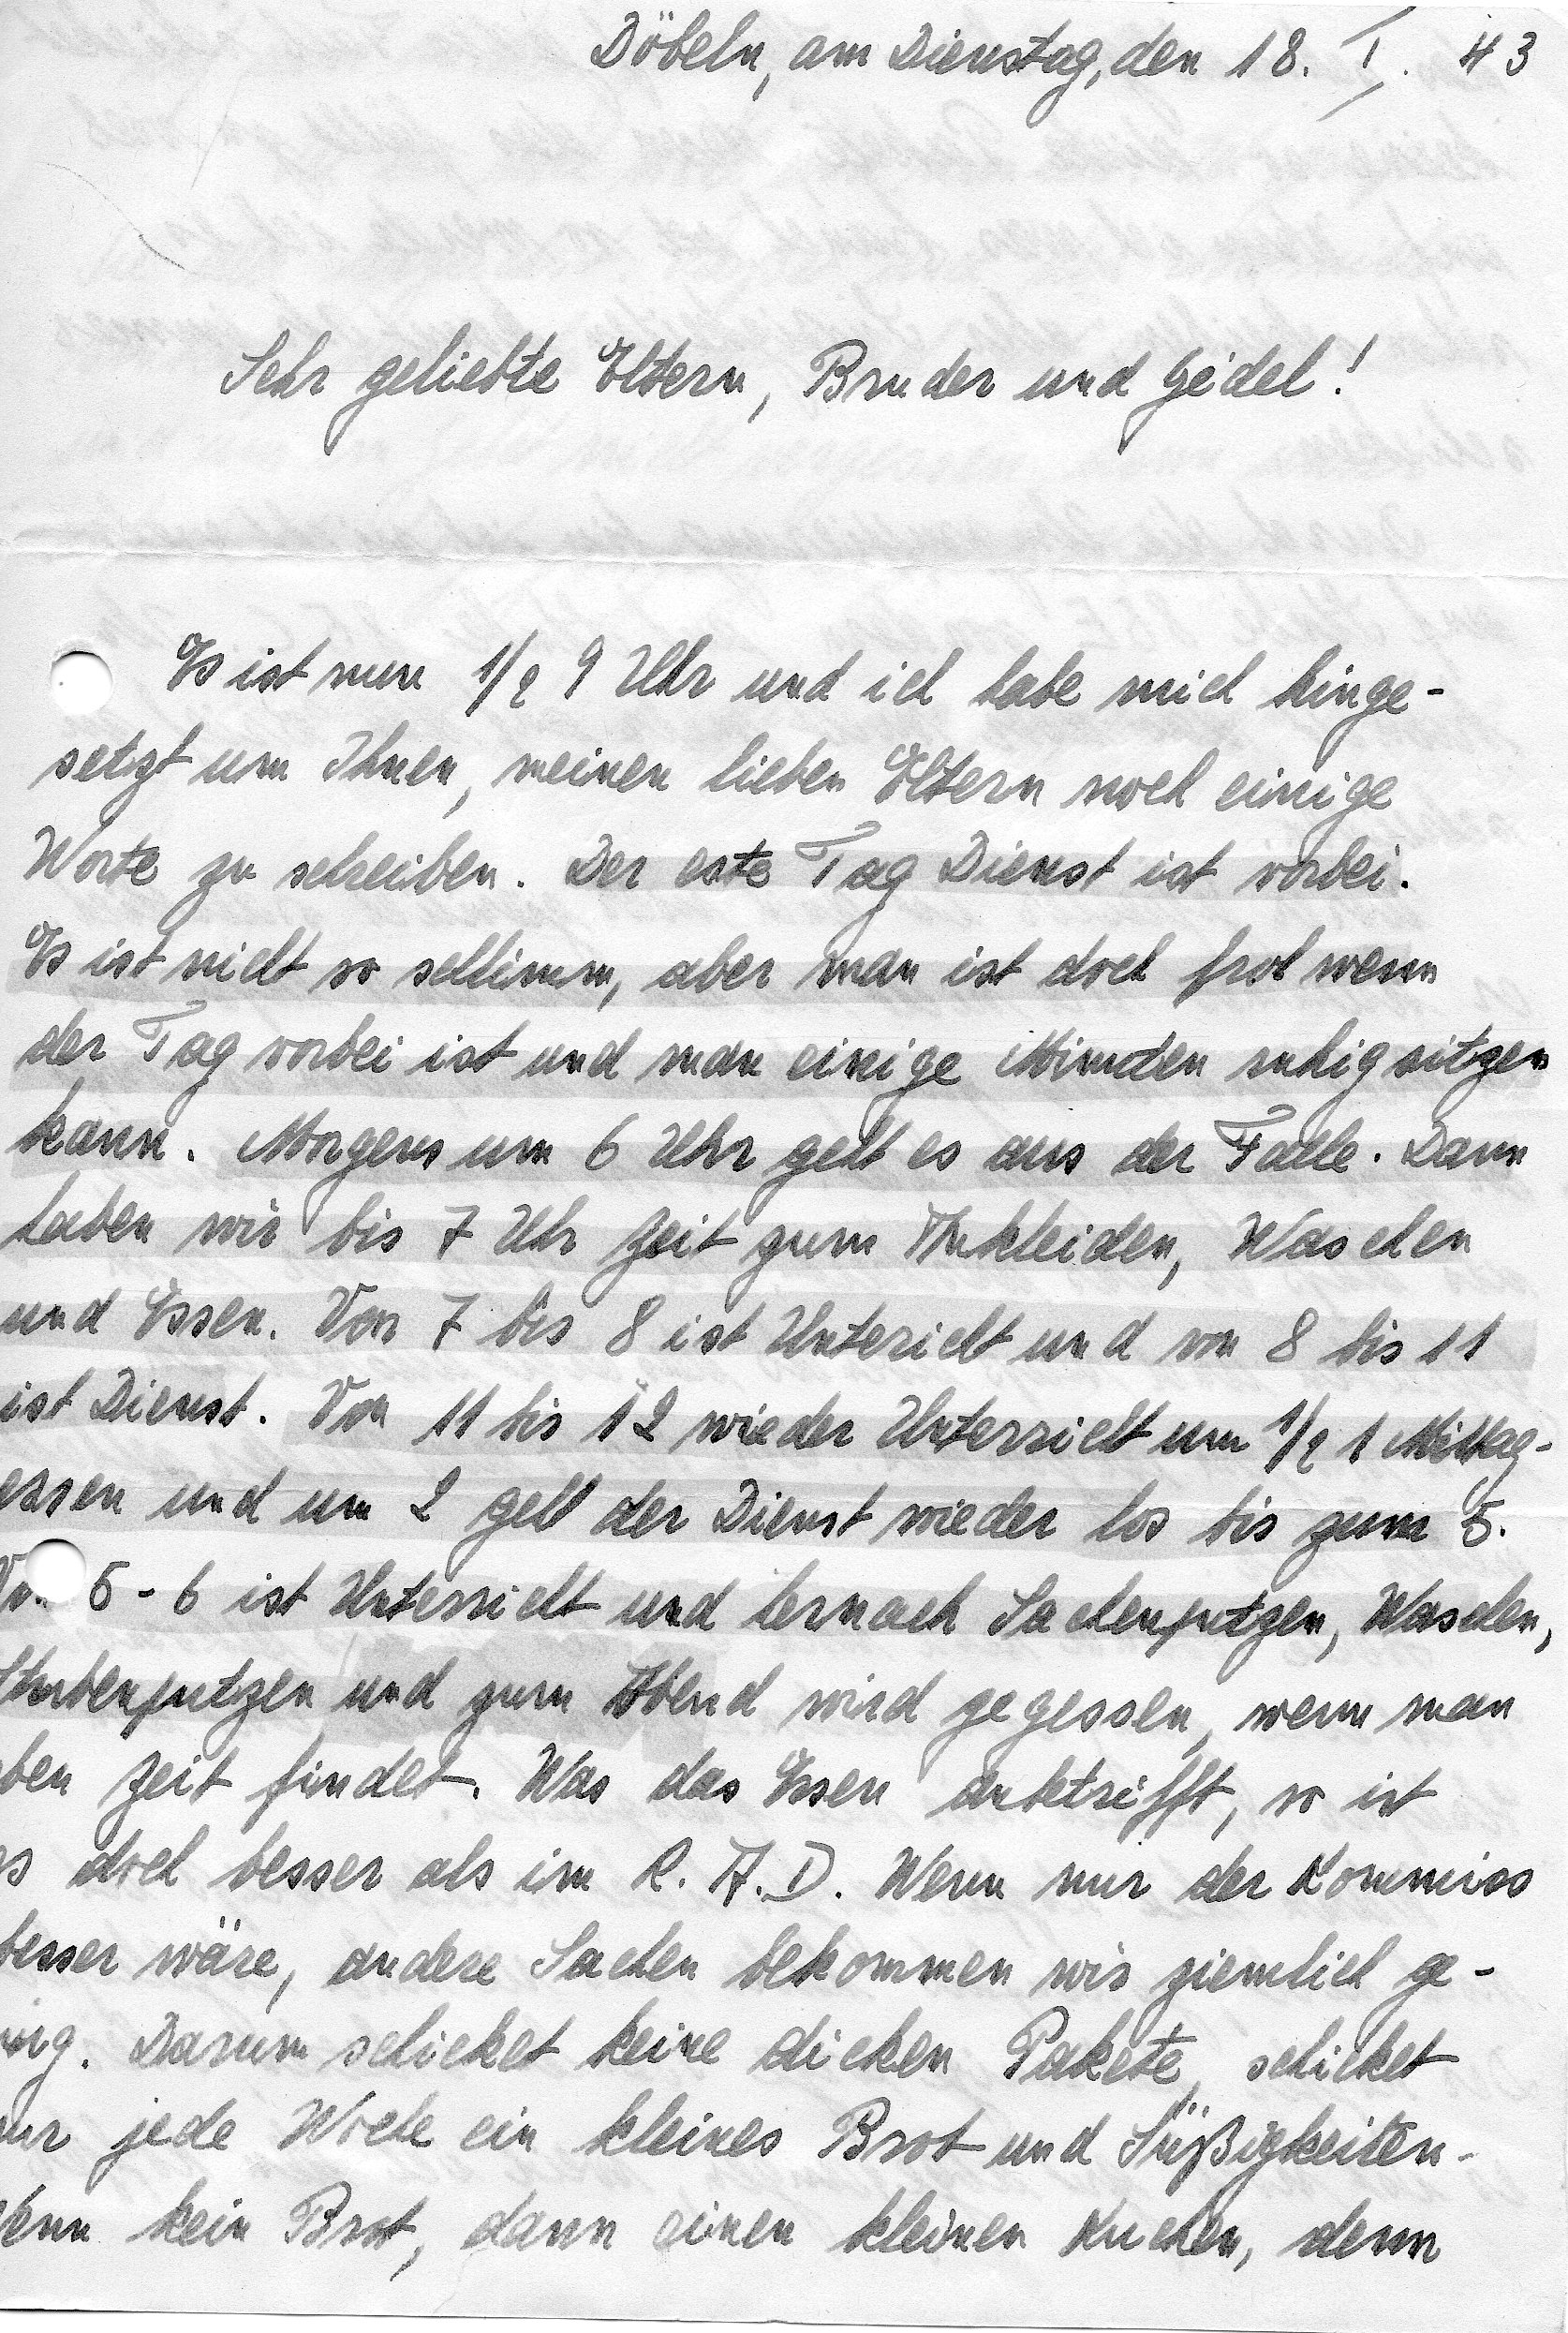 Döbeln, am Dienstag, den 18. I. 43
Sehr geliebte Eltern, Bruder und Geidel!
Es ist nun 1/2 9 Uhr und ich habe mich hinge-
setzt um Ihnen, meinen lieben Eltern noch einige
Worte zu schreiben. Der este Tag Dienst ist vorbei.
Es ist nicht so schlimm, aber man ist doch froh wenn
der Tag vorbei ist und man einige Minuten ruhig sitzen
kann. Morgens um 6 Uhr geht es aus der Falle. Dann
haben wir bis 7 Uhr Zeit zum Ankleiden, Waschen
und Essen. Von 7 bis 8 ist Untericht und von 8 bis 11
ist Dienst. Von 11 bis 12 wieder Unterricht um 1/2 1 Mittag-
essen und um 2 geht der Dienst wieder los bis zum 5.
Von 5 - 6 ist Unterricht und hernach Sachenputzen, Waschen,
Stubenputzen und zum Abend wird gegessen, wenn man
eben Zeit findet. Was das Essen anbetrifft, so ist
es doch besser als im R. A. D. Wenn nur der Kommiss
besser wäre, andere Sachen bekommen wir ziemlich ge-
nug. Darum schicket keine dicken Pakete, schicket
nur jede Woche ein kleines Brot und Süßigkeiten.
Wenn kein Brot, dann einen kleinen Kuchen, denn